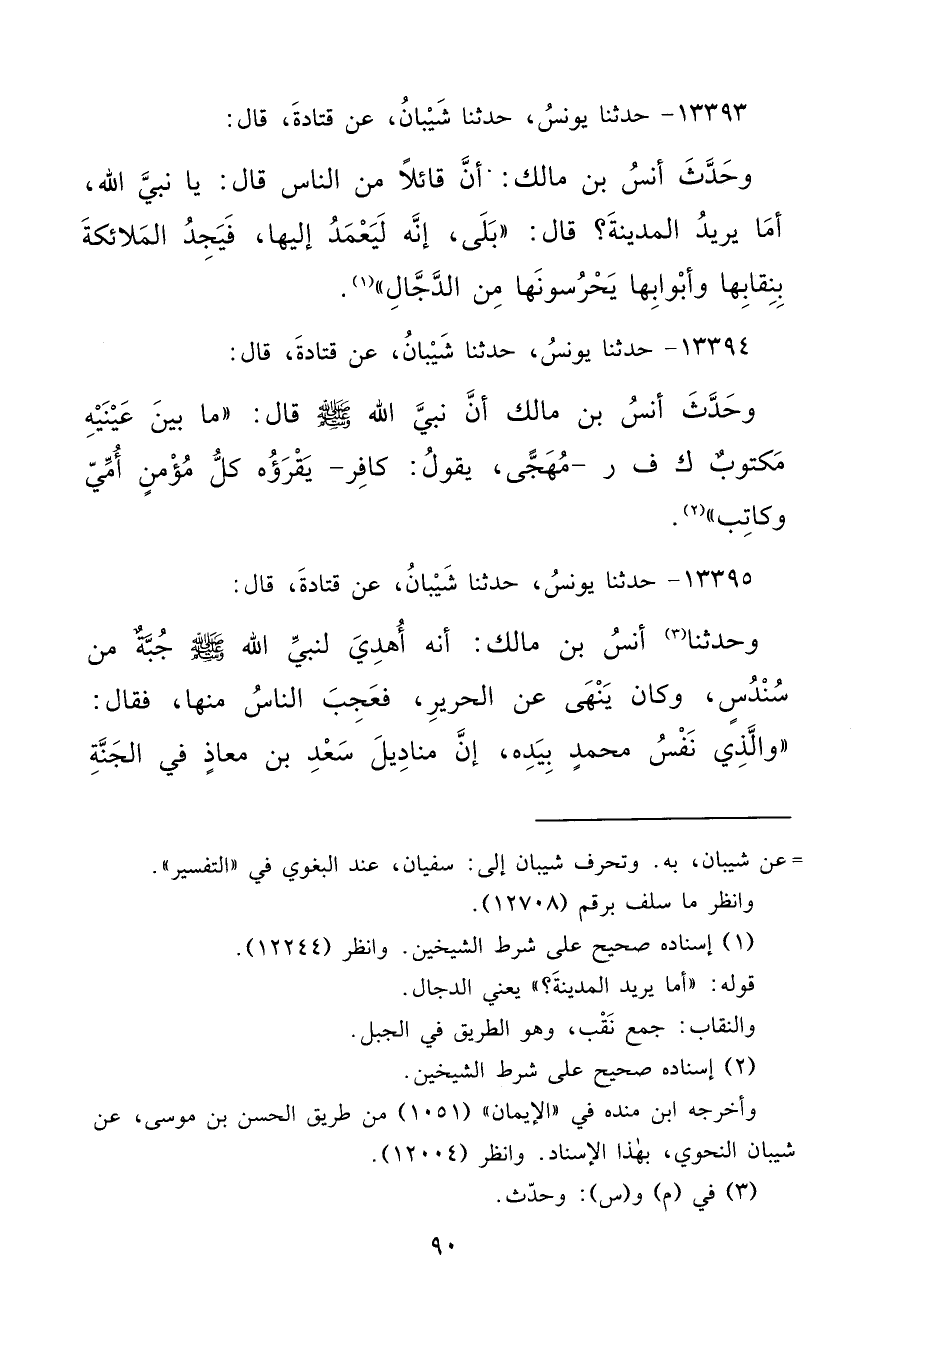 ١٣٣٩٣- حدثنا يونسُ، حدثنا شَيْبانُ، عن قتادةَ، قال:
وحَدَّثَ أنسُ بن مالك: أنَّ قائلاً من الناس قال: يا نبيَّ الله،
أمَا يريدُ المدينةَ؟ قال: «بَلَى، إنَّه لَيَعْمَدُ إليها، فَيَجِدُ المَلائكةَ
بِنِقابِها وأبْوابِها يَحْرُسونَها مِن الدَّجَّالِ»(١).
١٣٣٩٤- حدثنا يونسُ، حدثنا شَيْبانُ، عن قتادةَ، قال:
وحَدَّثَ أنسُ بن مالك أنَّ نبيَّ الله ﷺ قال: «ما بينَ عَيْنَيْهِ
مَكتوبٌ ك ف ر -مُهَجًّى، يقولُ: كافِر- يَقْرَؤُه كلُّ مُؤْمنٍ أُمِّيّ
وكاتِب»(٢).
١٣٣٩٥- حدثنا يونسُ، حدثنا شَيْبانُ، عن قتادةَ، قال:
وحدثنا(٣) أنسُ بن مالك: أنه أُهدِيَ لنبيِّ الله ﷺ جُبَّةٌ من
سُنْدُسٍ، وكان يَنْهَى عن الحريرِ، فعَجِبَ الناسُ منها، فقال:
«والَّذِي نَفْسُ محمدٍ بِيَدِه، إنَّ منادِيلَ سَعْدِ بن معاذٍ في الجَنَّةِ
= عن شيبان، به. وتحرف شيبان إلى: سفيان، عند البغوي في «التفسير».
وانظر ما سلف برقم (١٢٧٠٨).
(١) إسناده صحيح على شرط الشيخين. وانظر (١٢٢٤٤).
قوله: «أما يريد المدينةَ؟» يعني الدجال.
والنقاب: جمع نَقْب، وهو الطريق في الجبل.
(٢) إسناده صحيح على شرط الشيخين.
وأخرجه ابن منده في «الإيمان» (١٠٥١) من طريق الحسن بن موسى، عن
شيبان النحوي، بهٰذا الإسناد. وانظر (١٢٠٠٤).
(٣) في (م) و(س): وحدّث.
٩٠